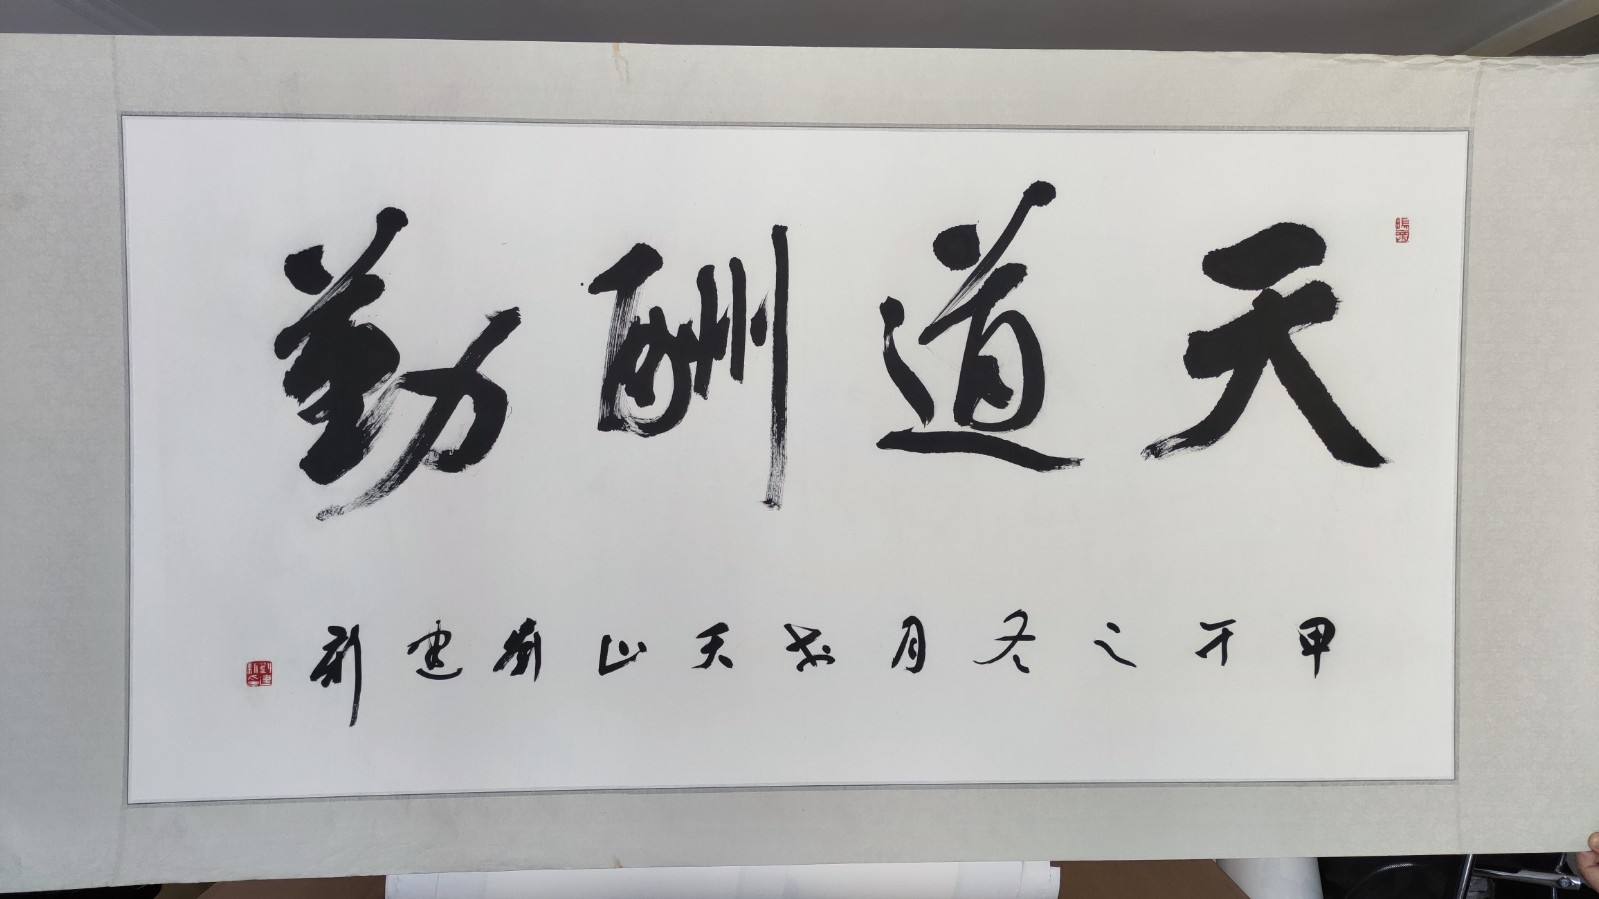 天道酬勤
甲午之冬月書天山劉建新